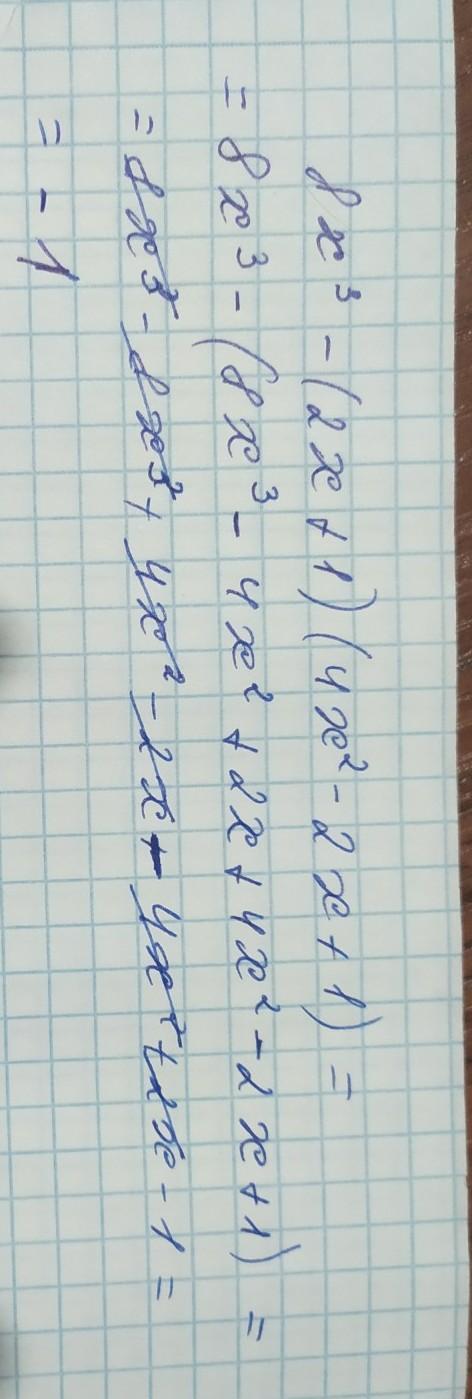 8x³ - (2x + 1)(4x² - 2x + 1) =
= 8x³ - (8x³ - 4x² + 2x + 4x² - 2x + 1) =
= 8x³ - 8x³ + 4x² - 2x - 4x² + 2x - 1 =
= - 1